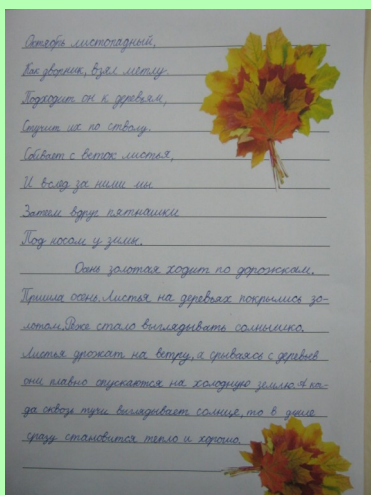 Октябрь листопадный,
Как дворник, взял метлу.
Подходит он к деревьям,
Стучит их по стволу.
Сбивает с веток листья,
И вслед за ними мы
Затеем вдруг пятнашки
Под носом у зимы.
Осень золотая ходит по дорожкам.
Пришла осень. Листья на деревьях покрылись зо-
лотом. Реже стало выглядывать солнышко.
Листья дрожат на ветру, а срываясь с деревьев
они плавно опускаются на холодную землю. А ког-
да сквозь тучи выглядывает солнце, то в душе
сразу становится тепло и хорошо.